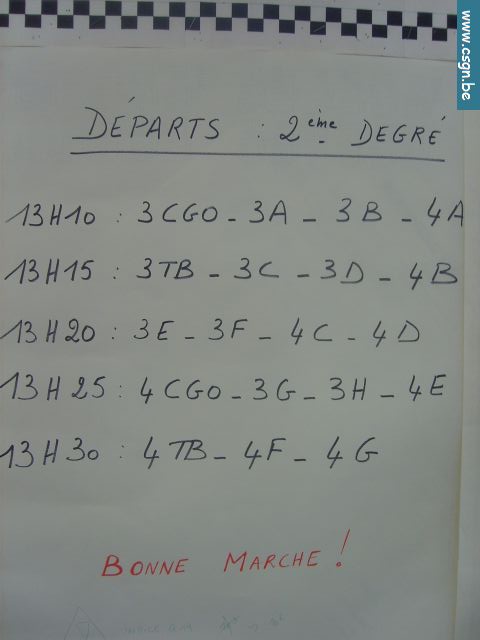 www.csgn.be
DÉPARTS : 2ème DEGRÉ
13H10 : 3CGO - 3A - 3B - 4A
13H15 : 3TB - 3C - 3D - 4B
13H20 : 3E - 3F - 4C - 4D
13H25 : 4CGO - 3G - 3H - 4E
13H30 : 4TB - 4F - 4G
BONNE MARCHE !